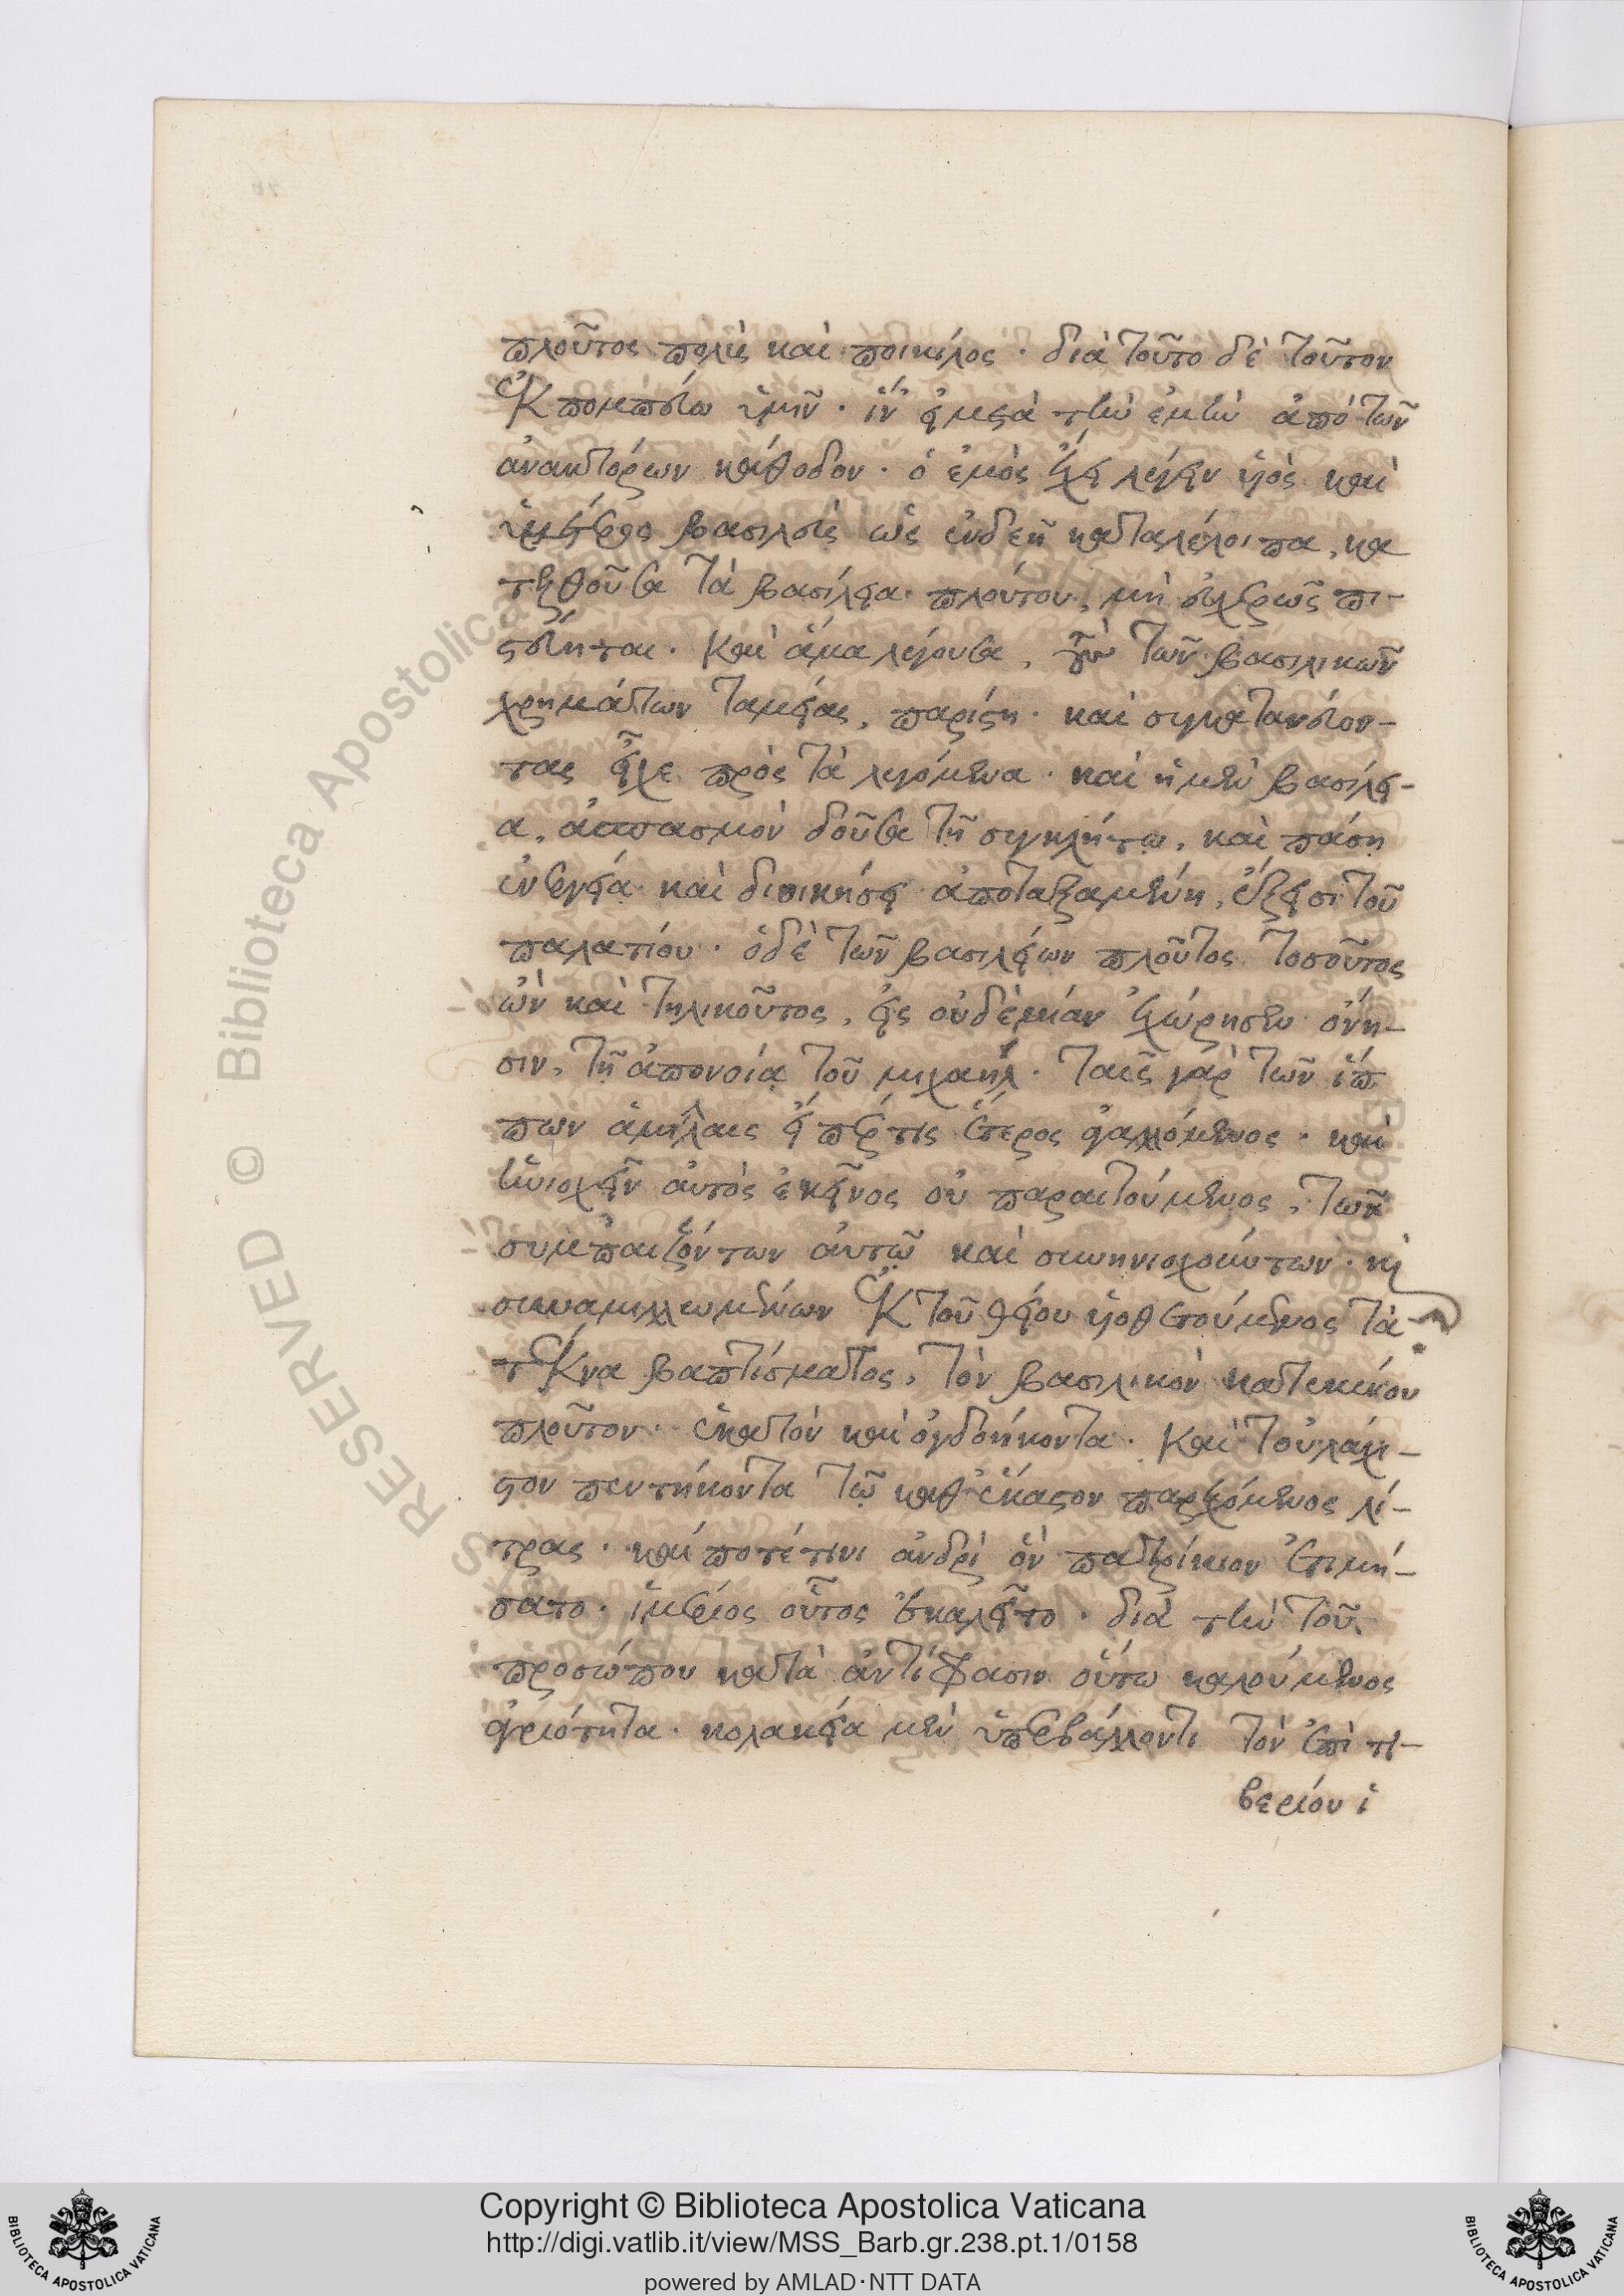 πλοῦτος πολὺς καὶ ποικίλος · διὰ τοῦτο δὲ τοῦτον
ἐκπομπεύω ὑμῖν · ἵν εἰ μετὰ τὴν ἐμὴν ἀπὸ τῶν
ἀνακτόρων κάθοδον · ὁ ἐμὸς ἔχει λέγειν υἱὸς καὶ
ὑμέτερος βασιλεὺς ὡς ἐνδεῆ καταλέλοιπα, κα
τελθοῦσα τὰ βασίλεια πλούτου, μὴ εὐχερῶς πι-
στεύηται · καὶ ἅμα λέγουσα, τῶν βασιλικῶν
χρημάτων ταμίας, παρίστη · καὶ συγκατανεύον-
τας εἶχε πρὸς τὰ λεγόμενα · καὶ ἡ μὲν βασίλει-
α, ἀσπασμὸν δοῦσα τῇ συγκλήτῳ, καὶ πάσῃ
ἐνεργείᾳ καὶ διοικήσει ἀποταξαμένη, ἔξεισι τοῦ
παλατίου · ὁ δὲ τῶν βασιλείων πλοῦτος τοσοῦτος
ὢν καὶ τηλικοῦτος, εἰς οὐδὲ μίαν ἐχώρησεν ὄνη-
σιν, τῇ ἀπονοίᾳ τοῦ μιχαήλ · ταῖς γὰρ τῶν ἵπ
πων ἁμίλλαις εἴπερ τις ἕτερος ἀγαλλόμενος · καὶ
ἡνιοχεῖν αὐτὸς ἐκεῖνος οὐ παραιτούμενος, τῶν
συμπαιζόντων αὐτῷ καὶ συνηνιοχούντων · κὶ
συναμιλλωμένων ἐκ τοῦ θείου υἱοθετούμενος τὰ
τέκνα βαπτίσματος, τὸν βασιλικὸν κατεκένου
πλοῦτον · ἑκατὸν καὶ ὀγδοήκοντα · καὶ τοὐλάχι-
στον πεντήκοντα τῷ καθ' ἕκαστον παρεχόμενος λί-
τρας · καί ποτέ τινι ἀνδρὶ ὃν πατρίκιον ἐτιμή-
σατο · ἱμέριος οὗτος ἐκαλεῖτο · διὰ τὴν τοῦ
προσώπου κατὰ ἀντίφασιν οὕτω καλούμενος
ἀγριότητα · κολακείᾳ μὲν ὑπερβάλλοντι τὸν ἐπὶ τι-
βερίου ἱ
Copyright © Biblioteca Apostolica Vaticana
http://digi.vatlib.it/view/MSS_Barb.gr.238.pt.1/0158
powered by AMLAD·NTT DATA